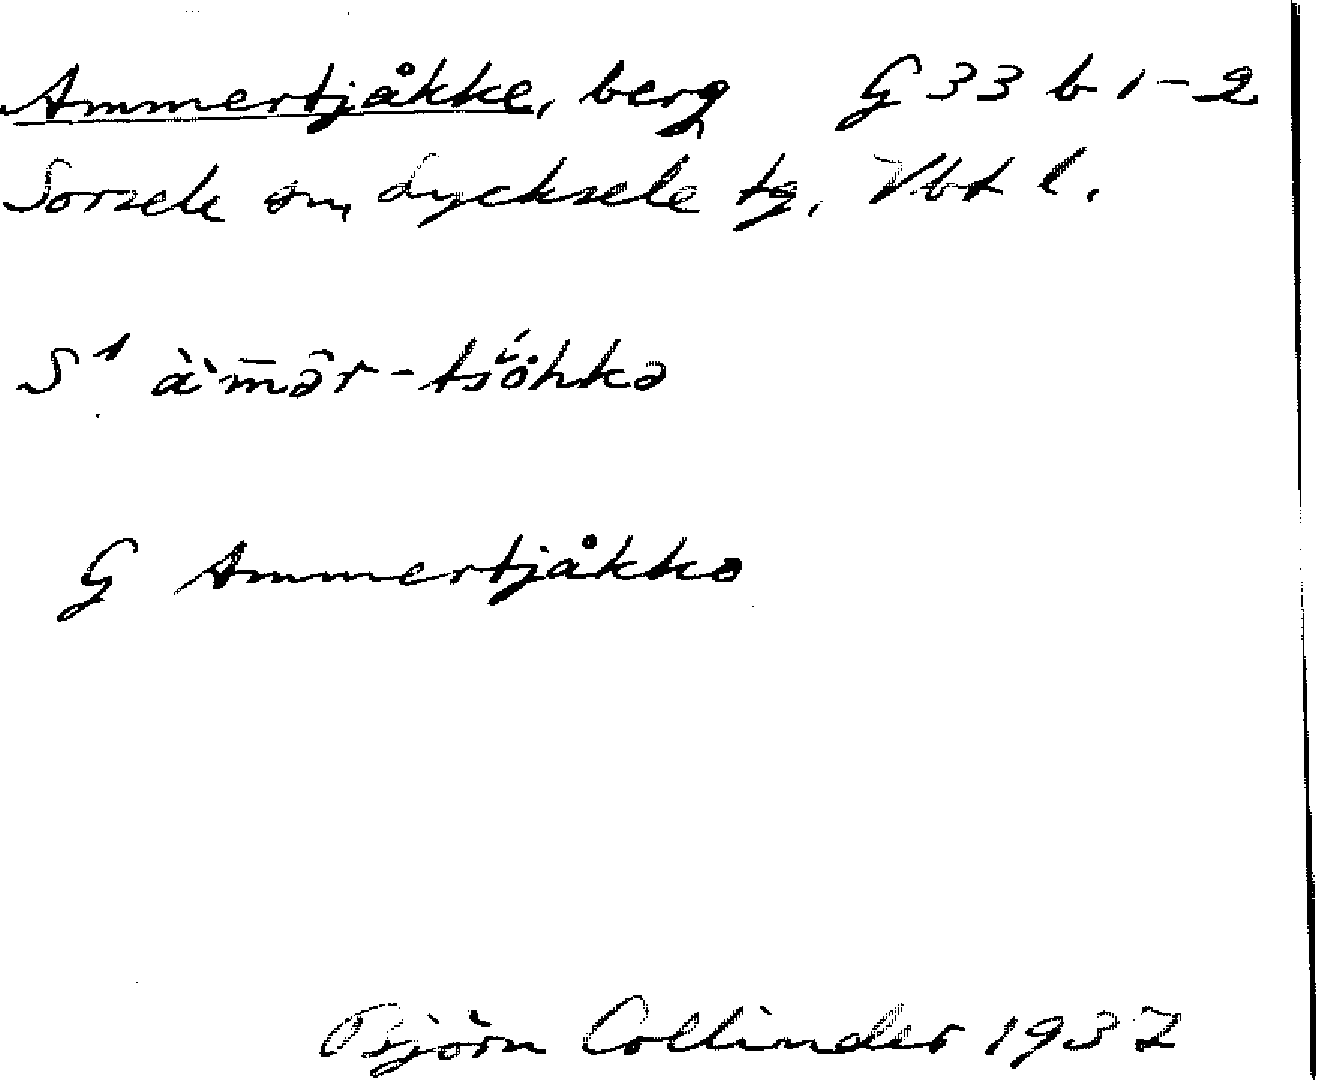 Ammertjåkke, berg G 33 b 1-2
Sorsele sn, Lycksele tg, Vbt l.
S¹ àˋm̄ə̂r-tśö́hkə
G Ammertjåkko
Björn Collinder 1937